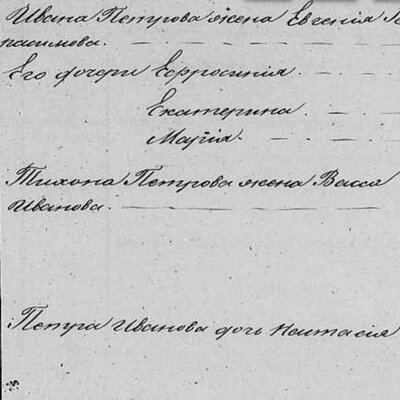 Ивана Петрова жена Евгенія Ге
расимова.
Его дочери Ефросинія.
Екатерина.
Марія.
Тихона Петрова жена Васса
Иванова.
Петра Иванова дочь Настасія